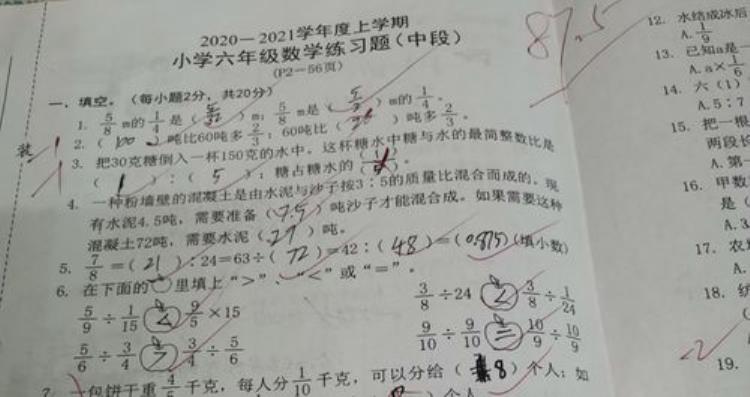 2020—2021学年度上学期
小学六年级数学练习题（中段）
（P2—56页）
87.5
一、填空。（每小题2分，共20分）
1. 5/8 m的1/4是（5/32）m；5/8 m是（5/2）m的1/4。
2.（100）吨比60吨多2/3；60吨比（）吨多2/3。
3. 把30克糖倒入一杯150克的水中。这杯糖水中糖与水的最简整数比是
（1）：（5）；糖占糖水的
4. 一种粉墙壁的混凝土是由水泥与沙子按3：5的质量比混合而成的。现
有水泥4.5吨，需要准备（7.5）吨沙子才能混合成。如果需要这种
混凝土72吨，需要水泥（27）吨。
5. 7/8=（21）：24=63÷（72）=42：（48）=（0.875）（填小数）
6. 在下面的○里填上“>”、“<”或“=”。
5/9÷1/15 < 9/5×15
3/8÷24 < 3/8÷1/24
5/6÷3/4 > 3/4÷5/6
9/10÷9/10 = 10/9÷10/9
一包饼干重4/5千克，每人分1/10千克，可以分给（8）个人；如
个人
装
12. 水结成冰后
A. 1/9
13. 已知a是
A. a×1/6
14. 六（1）
A. 5：7
15. 把一根
两段长
A. 第
16. 甲数
是（
A. 3
17. 农
A.
18. 纺
-2
19.